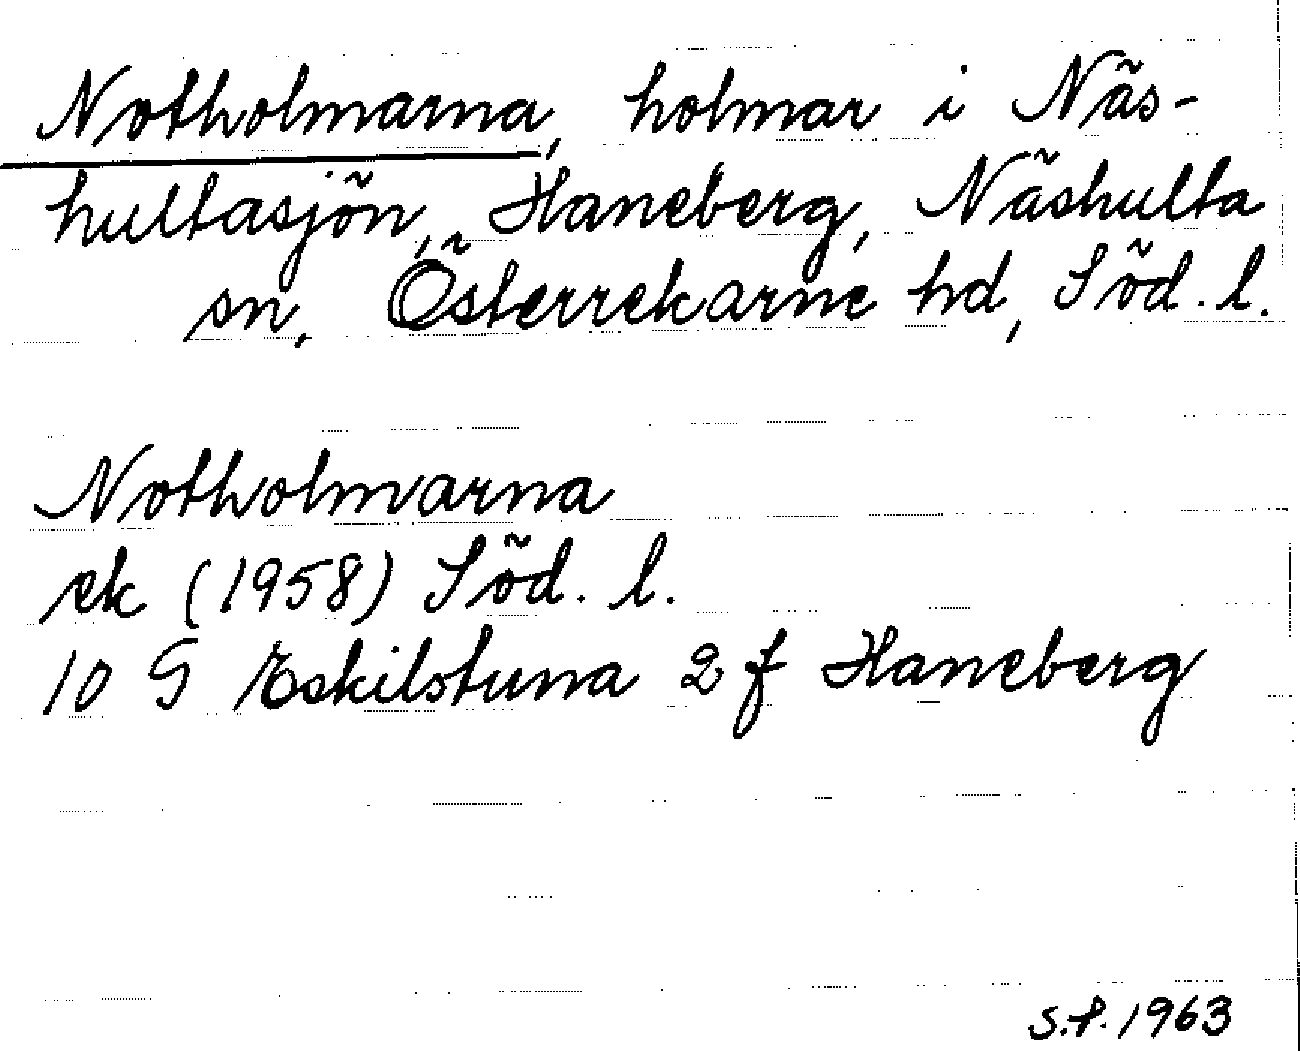 Notholmarna, holmar i Näs-
hultasjön, Haneberg, Näshulta
sn, Österrekarne hd, Söd. l.
Notholmarna
ek (1958) Söd. l.
10 G Eskilstuna 2 f Haneberg
S.P. 1963